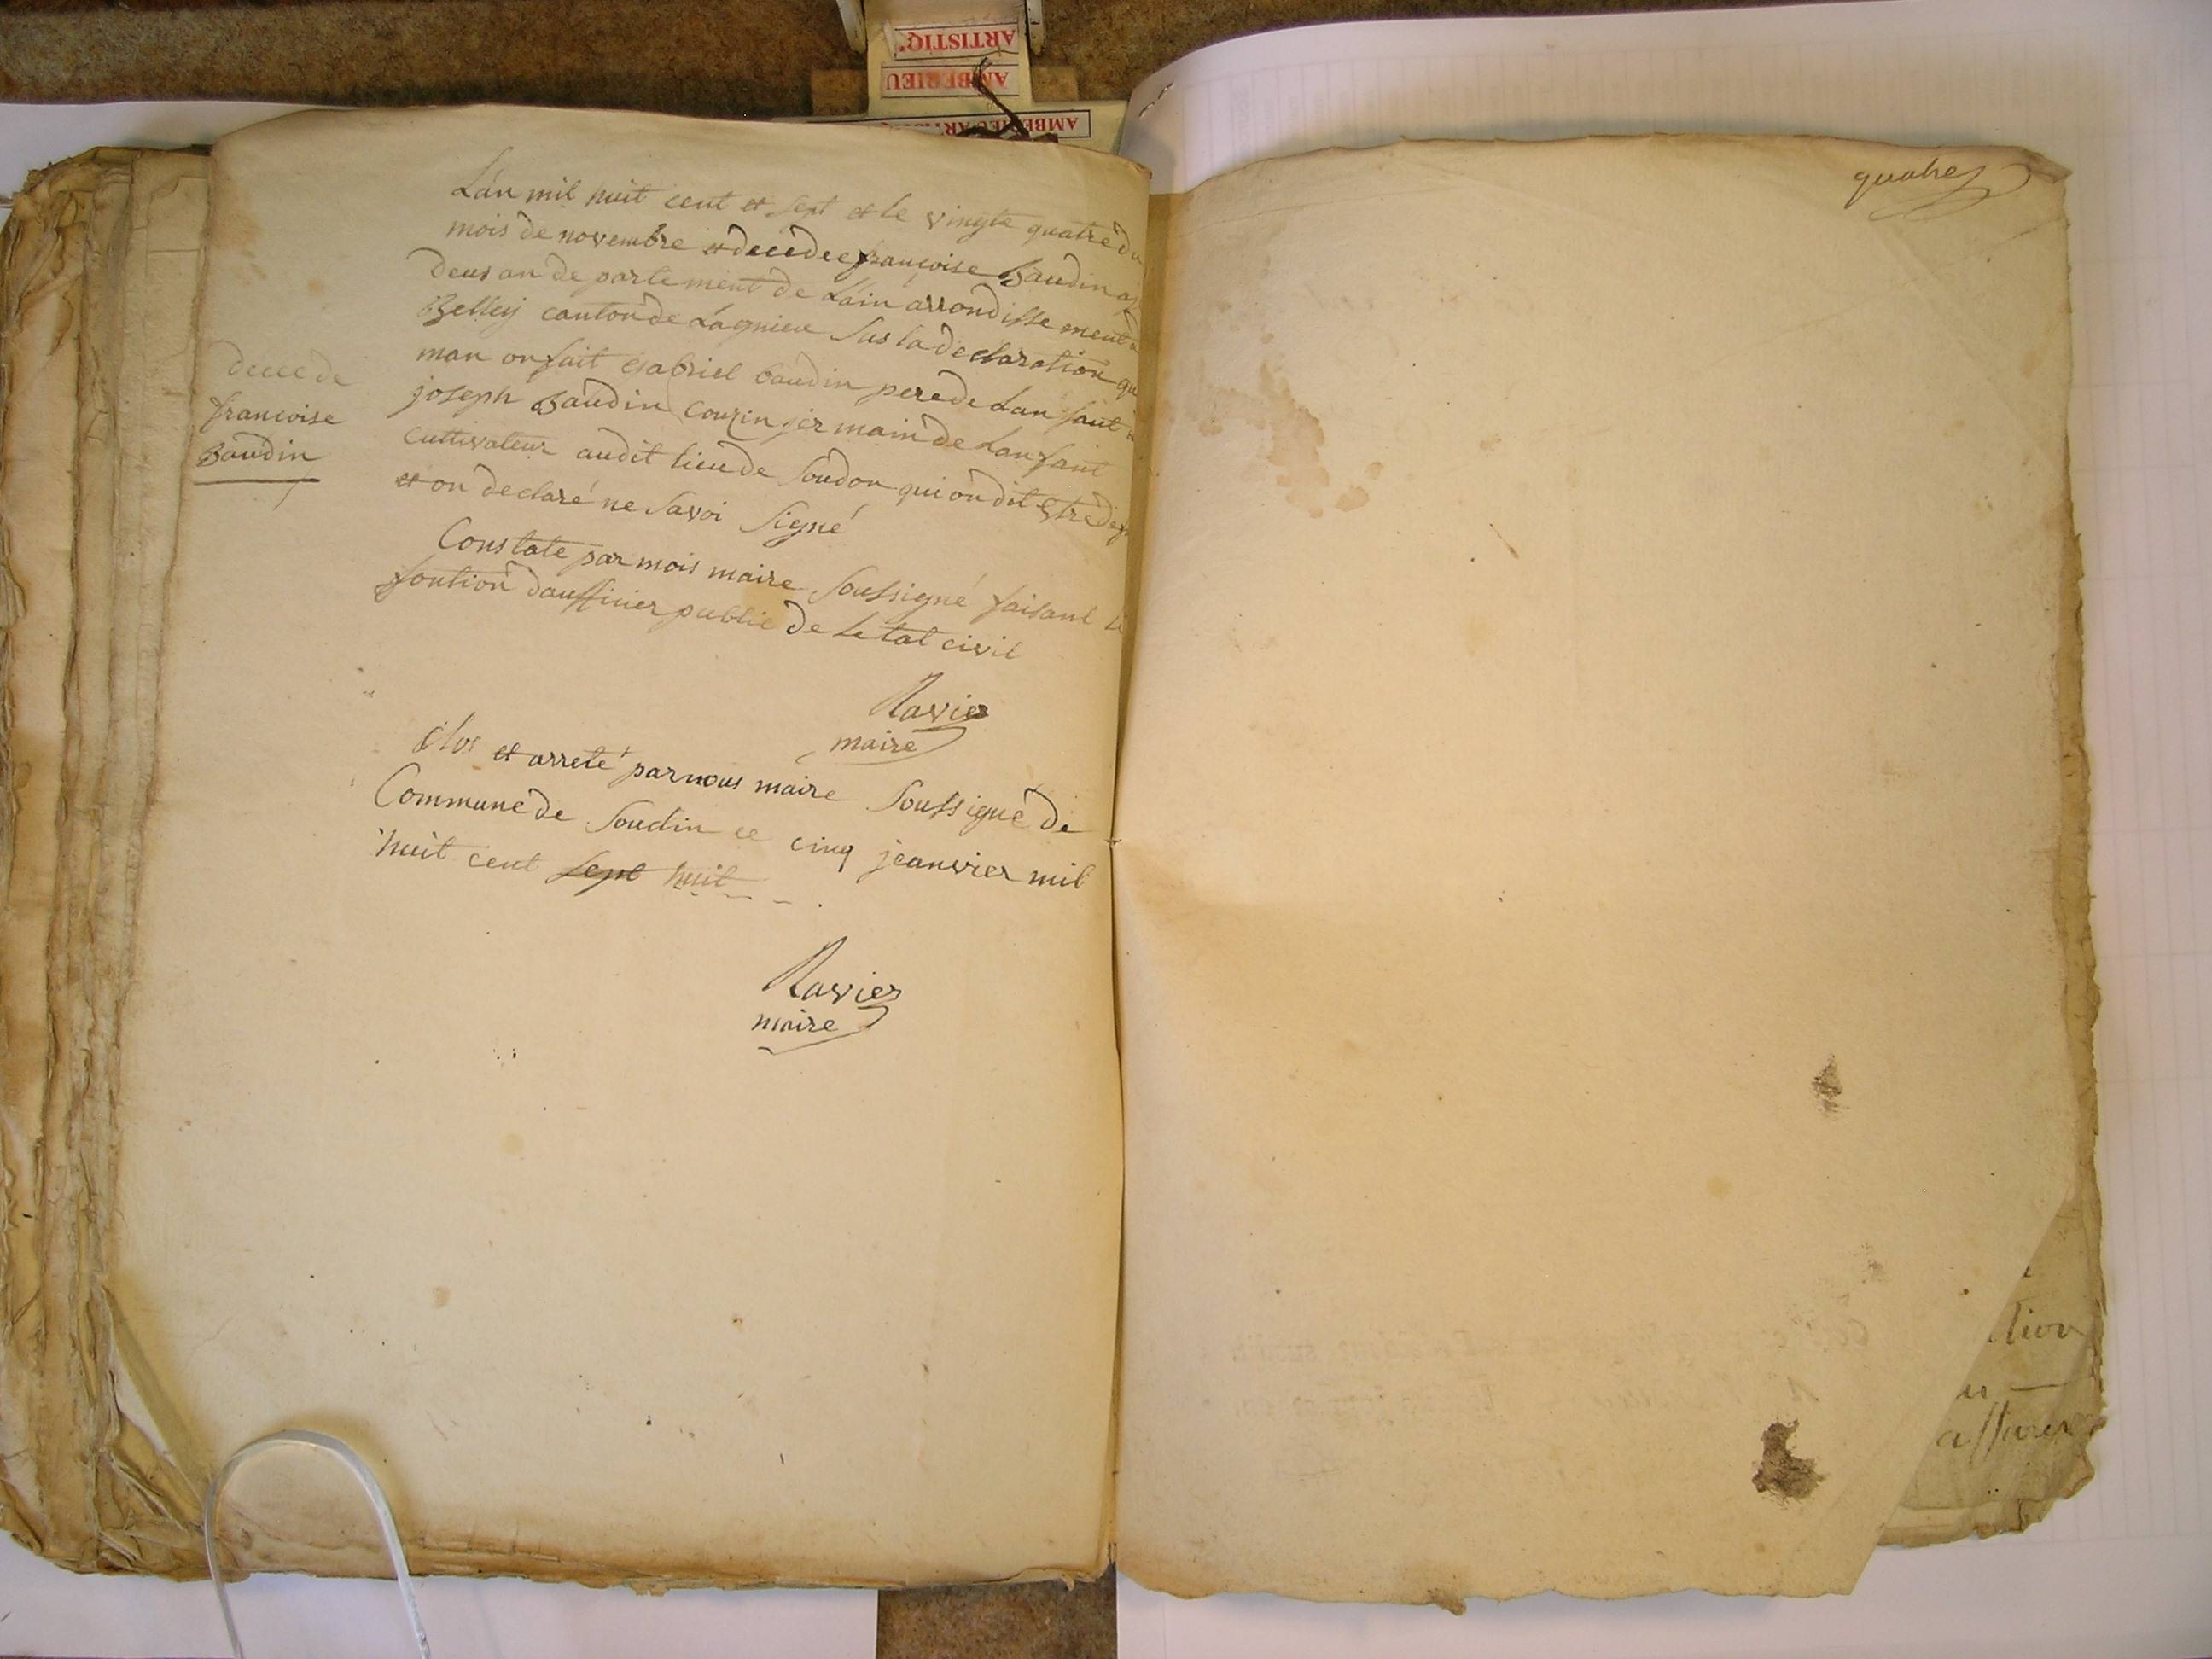 ARTISTIQ'
AMBERIEU
quatre
Lan mil huit cent et sept et le vingte quatre du
mois de novembre et decedee françoise Baudin
deus an de partement de Lain arrondissement
Belley canton de Lagnieu Sus la declaration que
man on fait Gabriel baudin pere de Lan fant
joseph Baudin Couzin jermain de Lanfant
Cultivateur audit lieu de Soudon qui on dit Etre
et on declaré ne Savoi Signé
Constate par mois maire Soussigné faisant
fontion dauffinier public de Letat civil
Ravier
maire
decede
francoise
Baudin
Clos et arreté par nous maire Soussigné de
Commune de Soudin ce cinq jeanvier mil
huit cent sept huit
Ravier
maire
tion
assurer